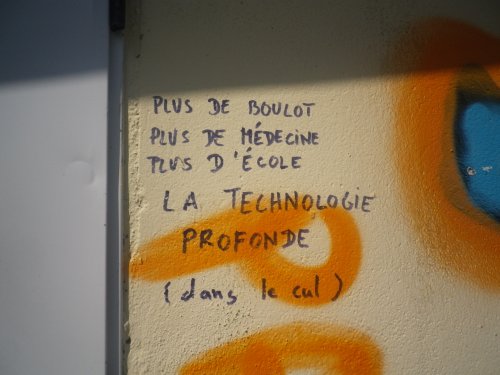 PLUS DE BOULOT
PLUS DE MÉDECINE
PLUS D'ÉCOLE
LA TECHNOLOGIE
PROFONDE
(dans le cul)